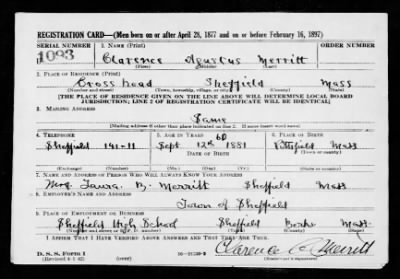 REGISTRATION CARD—(Men born on or after April 28, 1877 and on or before February 16, 1897)
SERIAL NUMBER 1. NAME (Print) ORDER NUMBER
1093 Clarence Agustus Merritt
(First) (Middle) (Last)
2. PLACE OF RESIDENCE (Print)
Cross Road Sheffield Mass
(Number and street) (Town, township, village, or city) (County) (State)
[THE PLACE OF RESIDENCE GIVEN ON THE LINE ABOVE WILL DETERMINE LOCAL BOARD
JURISDICTION; LINE 2 OF REGISTRATION CERTIFICATE WILL BE IDENTICAL]
3. MAILING ADDRESS
Same
[Mailing address if other than place indicated on line 2. If same insert word same]
4. TELEPHONE 5. AGE IN YEARS 60 6. PLACE OF BIRTH
Sheffield 141-11 Sept 12th 1881 Pittsfield Mass
DATE OF BIRTH (Town or county)
(Exchange) (Number) (Mo.) (Day) (Yr.) (State or country)
7. NAME AND ADDRESS OF PERSON WHO WILL ALWAYS KNOW YOUR ADDRESS
Mrs Laura B. Merritt Sheffield Mass
8. EMPLOYER'S NAME AND ADDRESS
Town of Sheffield
9. PLACE OF EMPLOYMENT OR BUSINESS
Sheffield High School Sheffield Berks Mass
(Number and street or R. F. D. number) (Town) (County) (State)
I AFFIRM THAT I HAVE VERIFIED ABOVE ANSWERS AND THAT THEY ARE TRUE.
D. S. S. Form 1
Clarence A Merritt